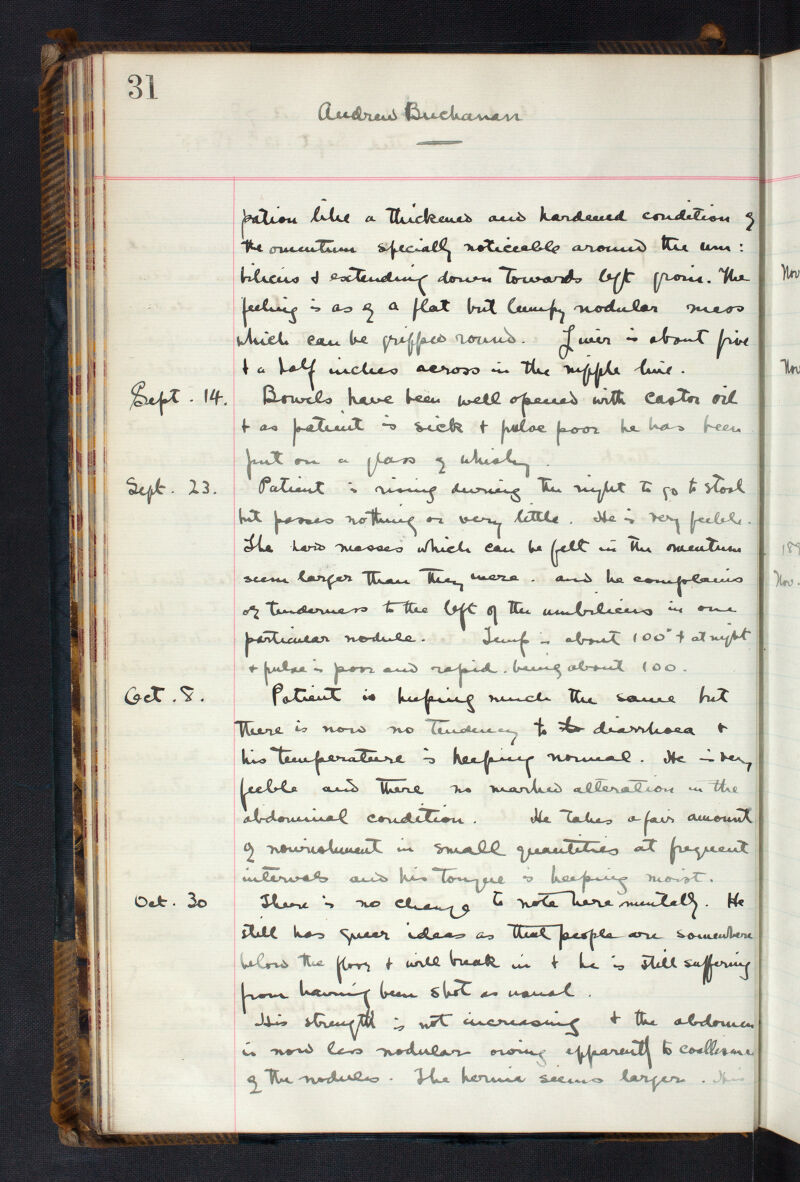 31
Andrew Buchanan
pation like a thickened and hardened condition of
the omentum specially noticeable around the um:
bilicus & extending down towards left groin. The
feeling is as of a flat but lumpy nodular mass
which can be gripped round. Liver is about five
& a half inches across in the nipple line.
Sept. 14. Bowels have been well opened with castor oil
& as patient is sick & pulse poor he has been
put on a glass of whisky.
Sept. 23. Patient is rising during the night to go to stool
but passes nothing or very little. He is very feeble.
The hard masses which can be felt in the omentum
seem larger than they were. and he complains
of tenderness to the left of the umbilicus in one
particular nodule. Temp is about 100° + at night
& pulse is poor and rapid. being about 100.
Oct. 8. Patient is keeping much the same but
there is now no tendency to to diarrhoea &
his temperature is keeping normal. He is very
feeble and there no marked alteration in the
abdominal condition. He takes a fair amount
of nourishment in small quantities at frequent
intervals and his tongue is keeping moist.
Oct. 30 There is no change to note here mentally. He
still has queer ideas as that people are somewhere
below the floor & will break in & he is still suffering
from having been shot as usual.
His strength is not increasing & the abdomen
is now less nodular owing apparently to
of the nodules. The hernia seems larger. His
Nov
Nov
189
Nov.